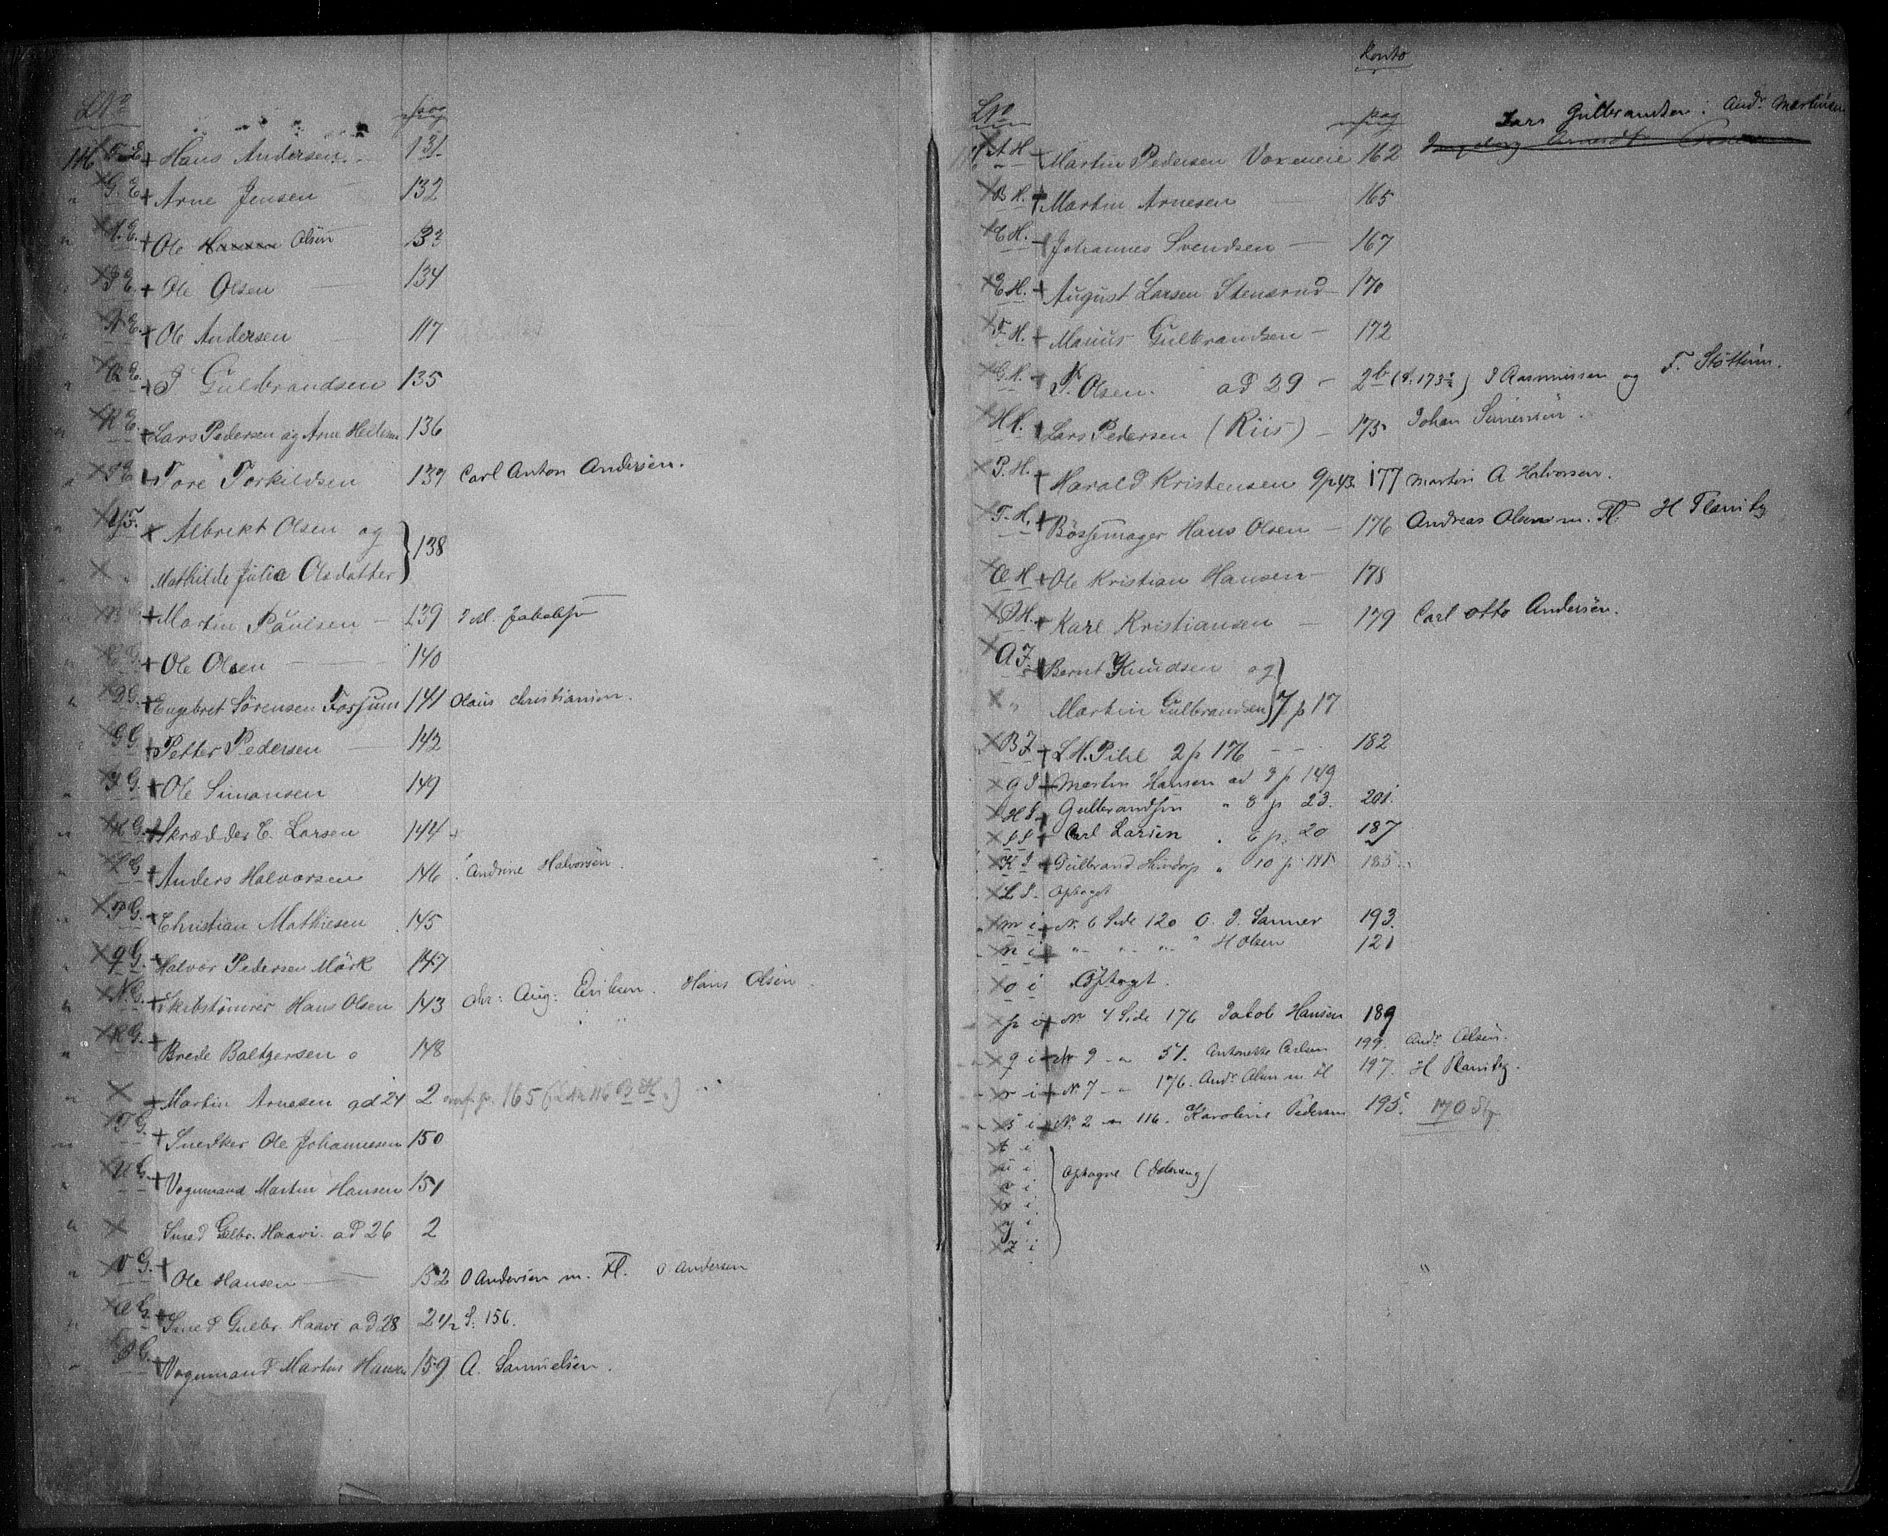 LNo pag
116 F.E. + Hans Andersen 131
" G.E. + Arne Jensen 132
" H.E. + Ole Hansen Olsen 133
" I.E. + Ole Olsen 134
" N.E. + Ole Andersen 117
" Q.E. + I Gulbrandsen 135
" R.E. + Lars Pedersen og Arne 136
" S.E. + Tore Torkildsen 137 Carl Anton Andersen.
" Albrekt Olsen og
" Mathilde Julie Olsdatter } 138
+ Martin Paulsen 139
+ Ole Olsen 140
" D.G. + Engebret Sørensen Fossum 141 Olaus Christiansen.
G.G. + Petter Pedersen 142
" F.G. + Ole Simonsen 149
" H.G. + Skrædder E. Larsen 144
" L.G. + Anders Halvorsen 146 Andrine Halvorsen.
P.G. + Christian Mathiesen 145
" Q.G. + Halvor Pedersen Mørk 147
" N.G. + Skibstømrer Hans Olsen 143 Chr: Aug: Eriksen. Hans Olsen
" R.G. + Brede Baltzersen 148
" + Martin Arnesen ad 24 2 overf. p. 165 (LNo 116 B H.)
" T.G. + Snedker Ole Johannessen 150
" U.G. + Vognmand Martin Hansen 151
" Smed Gulbr. Haavi ad 26 2
" V.G. + Ole Hansen 152 O Andersen m. Fl. O Andersen
" Ø G. + Smed Gulbr. Haavi ad 28 2 1/2 S. 156.
+ Vognmand Martin Hansen 159 A. Samuelsen.
Konto
LNo pag Lars Gulbrandsen: Andr Martinsen
116 A H. + Martin Pedersen Voxeneie 162
B H. + Martin Arnesen 165
C H. + Johannes Svendsen 167
E H. + August Larsen Stensrud 170
F H. + Marius Gulbrandsen 172
G H. + P. Olsen. ad 29 2 b (S. 173 ) I Rasmussen og F. Støttum.
H H. + Lars Pedersen (Riis) 175 Johan Simensen.
P. H. + Harald Kristensen 9 p 43. 177 Martin A Halvorsen.
T. H. + Bøssemager Hans Olsen 176 Andreas Olsen m. Fl. H Flamby
Æ H + Ole Kristian Hansen 178
Ø H. + Karl Kristiansen 179 Carl Otto Andersen.
A I. + Bernt Knudsen og
" Martin Gulbrandsen } 7 p 17
B I + L H. Pihl 2 p 176 182
G I + Martin Hansen ad 9 p 149
H I + Gulbrandsen " 8 p 23. 201.
+ Carl Larsen " 6 p. 20 187
K I + Gulbrand " 10 p 185
L I. Optaget
m i + N. 6 Side 120 O. I. Sanner 193.
n i + " " " " H Olsen 121
o i Optagt.
p i + No 4 Side 176 Jakob Hansen 189
q i + No 9 " 51. Antonette Carlsen 199. Andr Olsen.
r i + No 7 " 176. Andr. Olsen m Fl 197. H Flamby.
s i + No 2 " 116. Karoline Pedersen 195. 170 Sty
t i
u i
v i } Optagne (Østereng)
x i
y i
z i